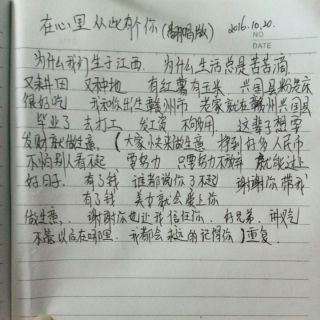 在心里从此有个你(翻唱版) 2016.10.20.
NO
DATE
为什么我们生于江西. 为什么生活总是苦苦滴
又耕田 又种地 有红薯有玉米. 兴国县粉是床
很好吃 我和你出生赣州市 老家就在赣州兴国县
毕业了 去打工 发工资 不够用. 这辈子想要
发财就做生意. (大家快来做生意 挣到好多人民币
不怕别人看不起 要努力 只要努力不放弃 就能过上
好日子! 有了钱 谁都说你了不起 谢谢你带我
有了钱 美女就会爱上你
做生意. 谢谢你也让我信任你. 好兄弟. 讲义气
不管以后在哪里. 我都会永远的记得你)重复.